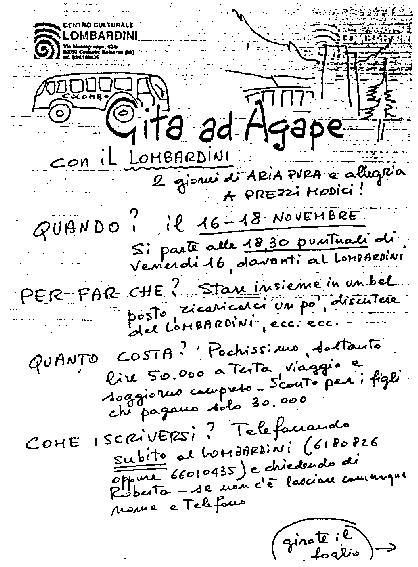 CENTRO CULTURALE
LOMBARDINI
Gita ad Agape
con il LOMBARDINI
2 giorni di ARIA PURA e allegria
A PREZZI MODICI!
QUANDO? il 16-18 NOVEMBRE
Si parte alle 18,30 puntuali di
Venerdì 16, davanti al LOMBARDINI
PER-FAR CHE? Stare insieme in un bel
posto, ricaricarci un po', discutere
del LOMBARDINI, ecc. ecc.
QUANTO COSTA? Pochissimo, soltanto
lire 50.000 a testa, viaggio e
soggiorno compreso - Sconto per i figli
che pagano solo 30.000
COME ISCRIVERSI? Telefonando
subito al LOMBARDINI (6180826
oppure 66010435) e chiedendo di
Roberta - se non c'è lasciare comunque
nome e Telefono
girate il
foglio →